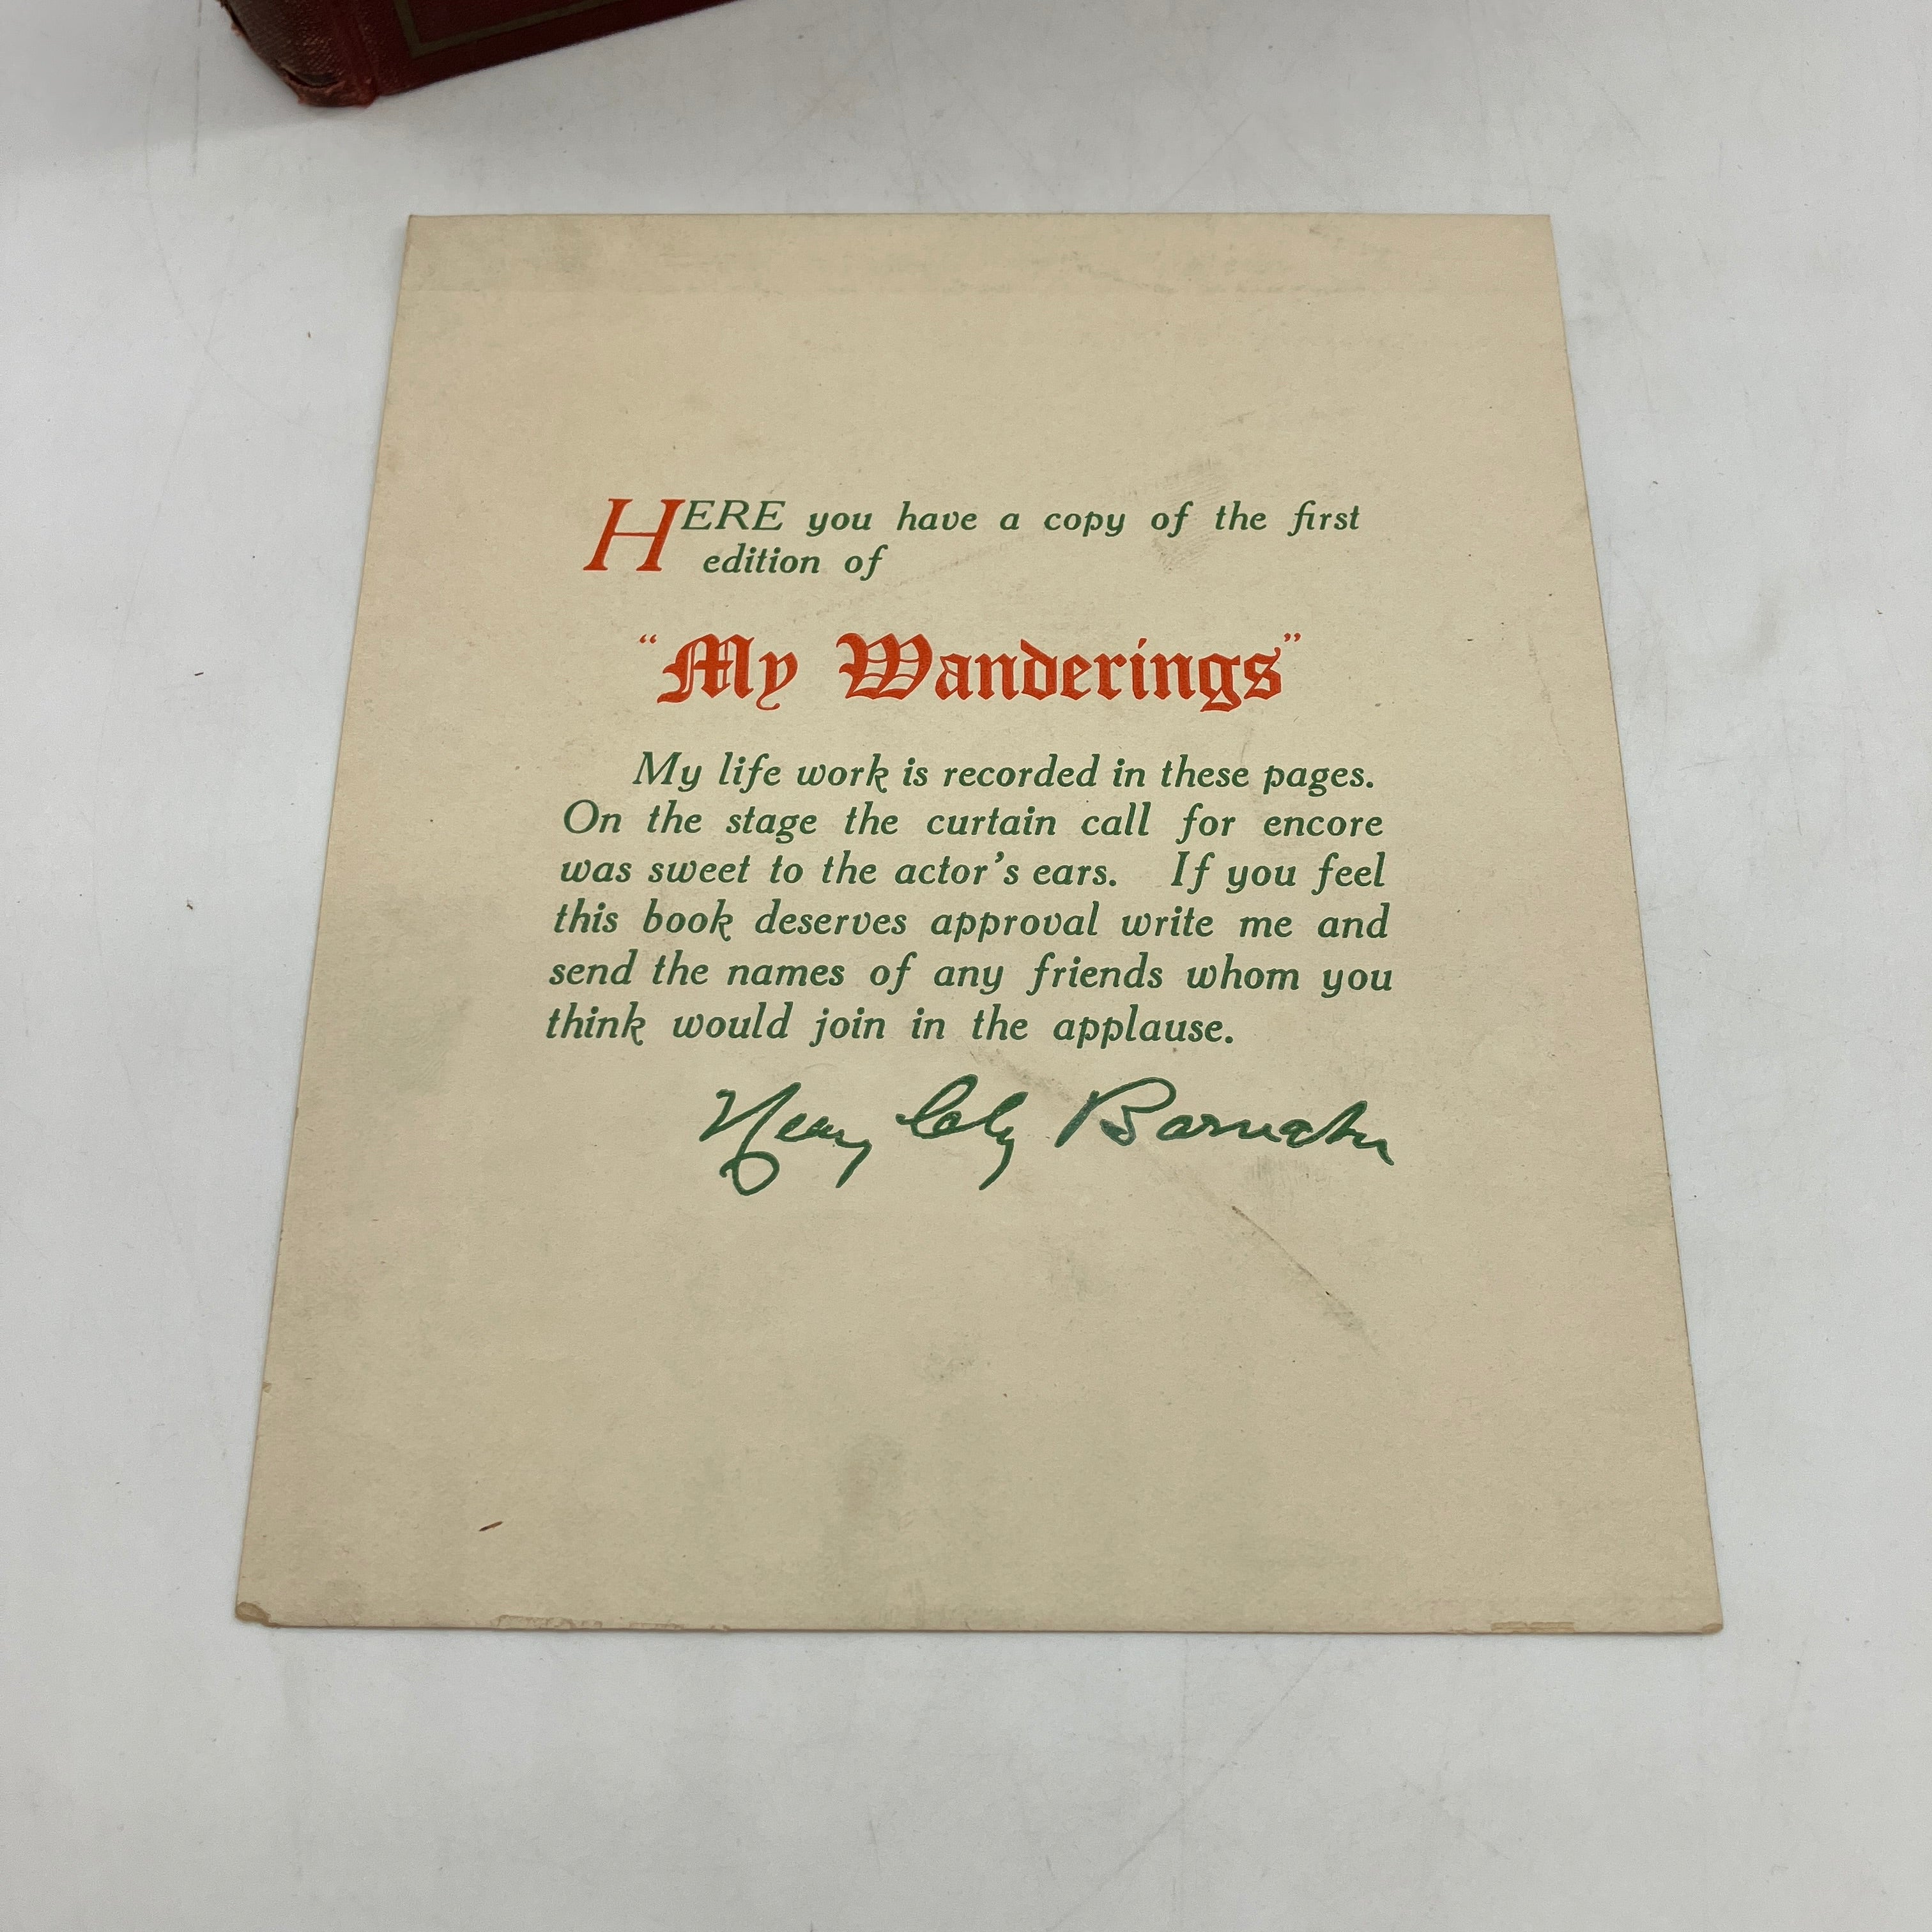 HERE you have a copy of the first
edition of
"My Wanderings"
My life work is recorded in these pages.
On the stage the curtain call for encore
was sweet to the actor's ears. If you feel
this book deserves approval write me and
send the names of any friends whom you
think would join in the applause.
Henry Clay Barnabee